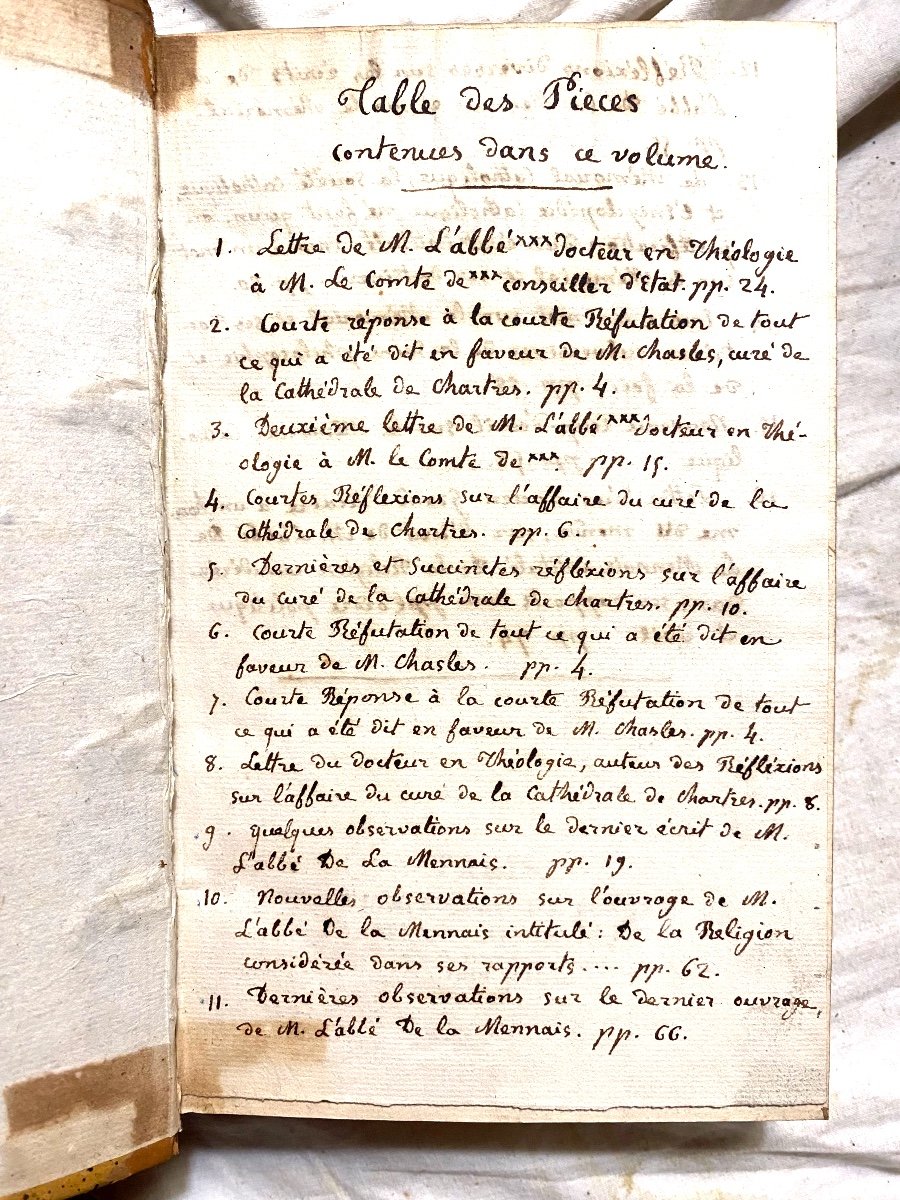 Table des Pieces
contenues dans ce volume.
1. Lettre de M. L'abbé xxx docteur en Théologie
à M. Le Comte de xxx conseiller d'Etat. pp. 24.
2. Courte réponse à la courte Réfutation de tout
ce qui a été dit en faveur de M. Chasles, curé de
la Cathédrale de Chartres. pp. 4.
3. Deuxième lettre de M. L'abbé xxx docteur en Thé-
ologie à M. le Comte de xxx. pp. 15.
4. Courtes Réflexions sur l'affaire du curé de la
Cathédrale de Chartres. pp. 6.
5. Dernières et Succinctes réfléxions sur l'affaire
du curé de la Cathédrale de Chartres. pp. 10.
6. Courte Réfutation de tout ce qui a été dit en
faveur de M. Chasles. pp. 4.
7. Courte Réponse à la courte Réfutation de tout
ce qui a été dit en faveur de M. Chasles. pp. 4.
8. Lettre du docteur en Théologie, auteur des Réfléxions
sur l'affaire du curé de la Cathédrale de Chartres. pp. 8.
9. quelques observations sur le dernier écrit de M.
L'abbé De La Mennais. pp. 19.
10. Nouvelles observations sur l'ouvrage de M.
L'abbé De la Mennais intitulé: De la Religion
considérée dans ses rapports.... pp. 62.
11. Dernières observations sur le dernier ouvrage,
de M. L'abbé De la Mennais. pp. 66.